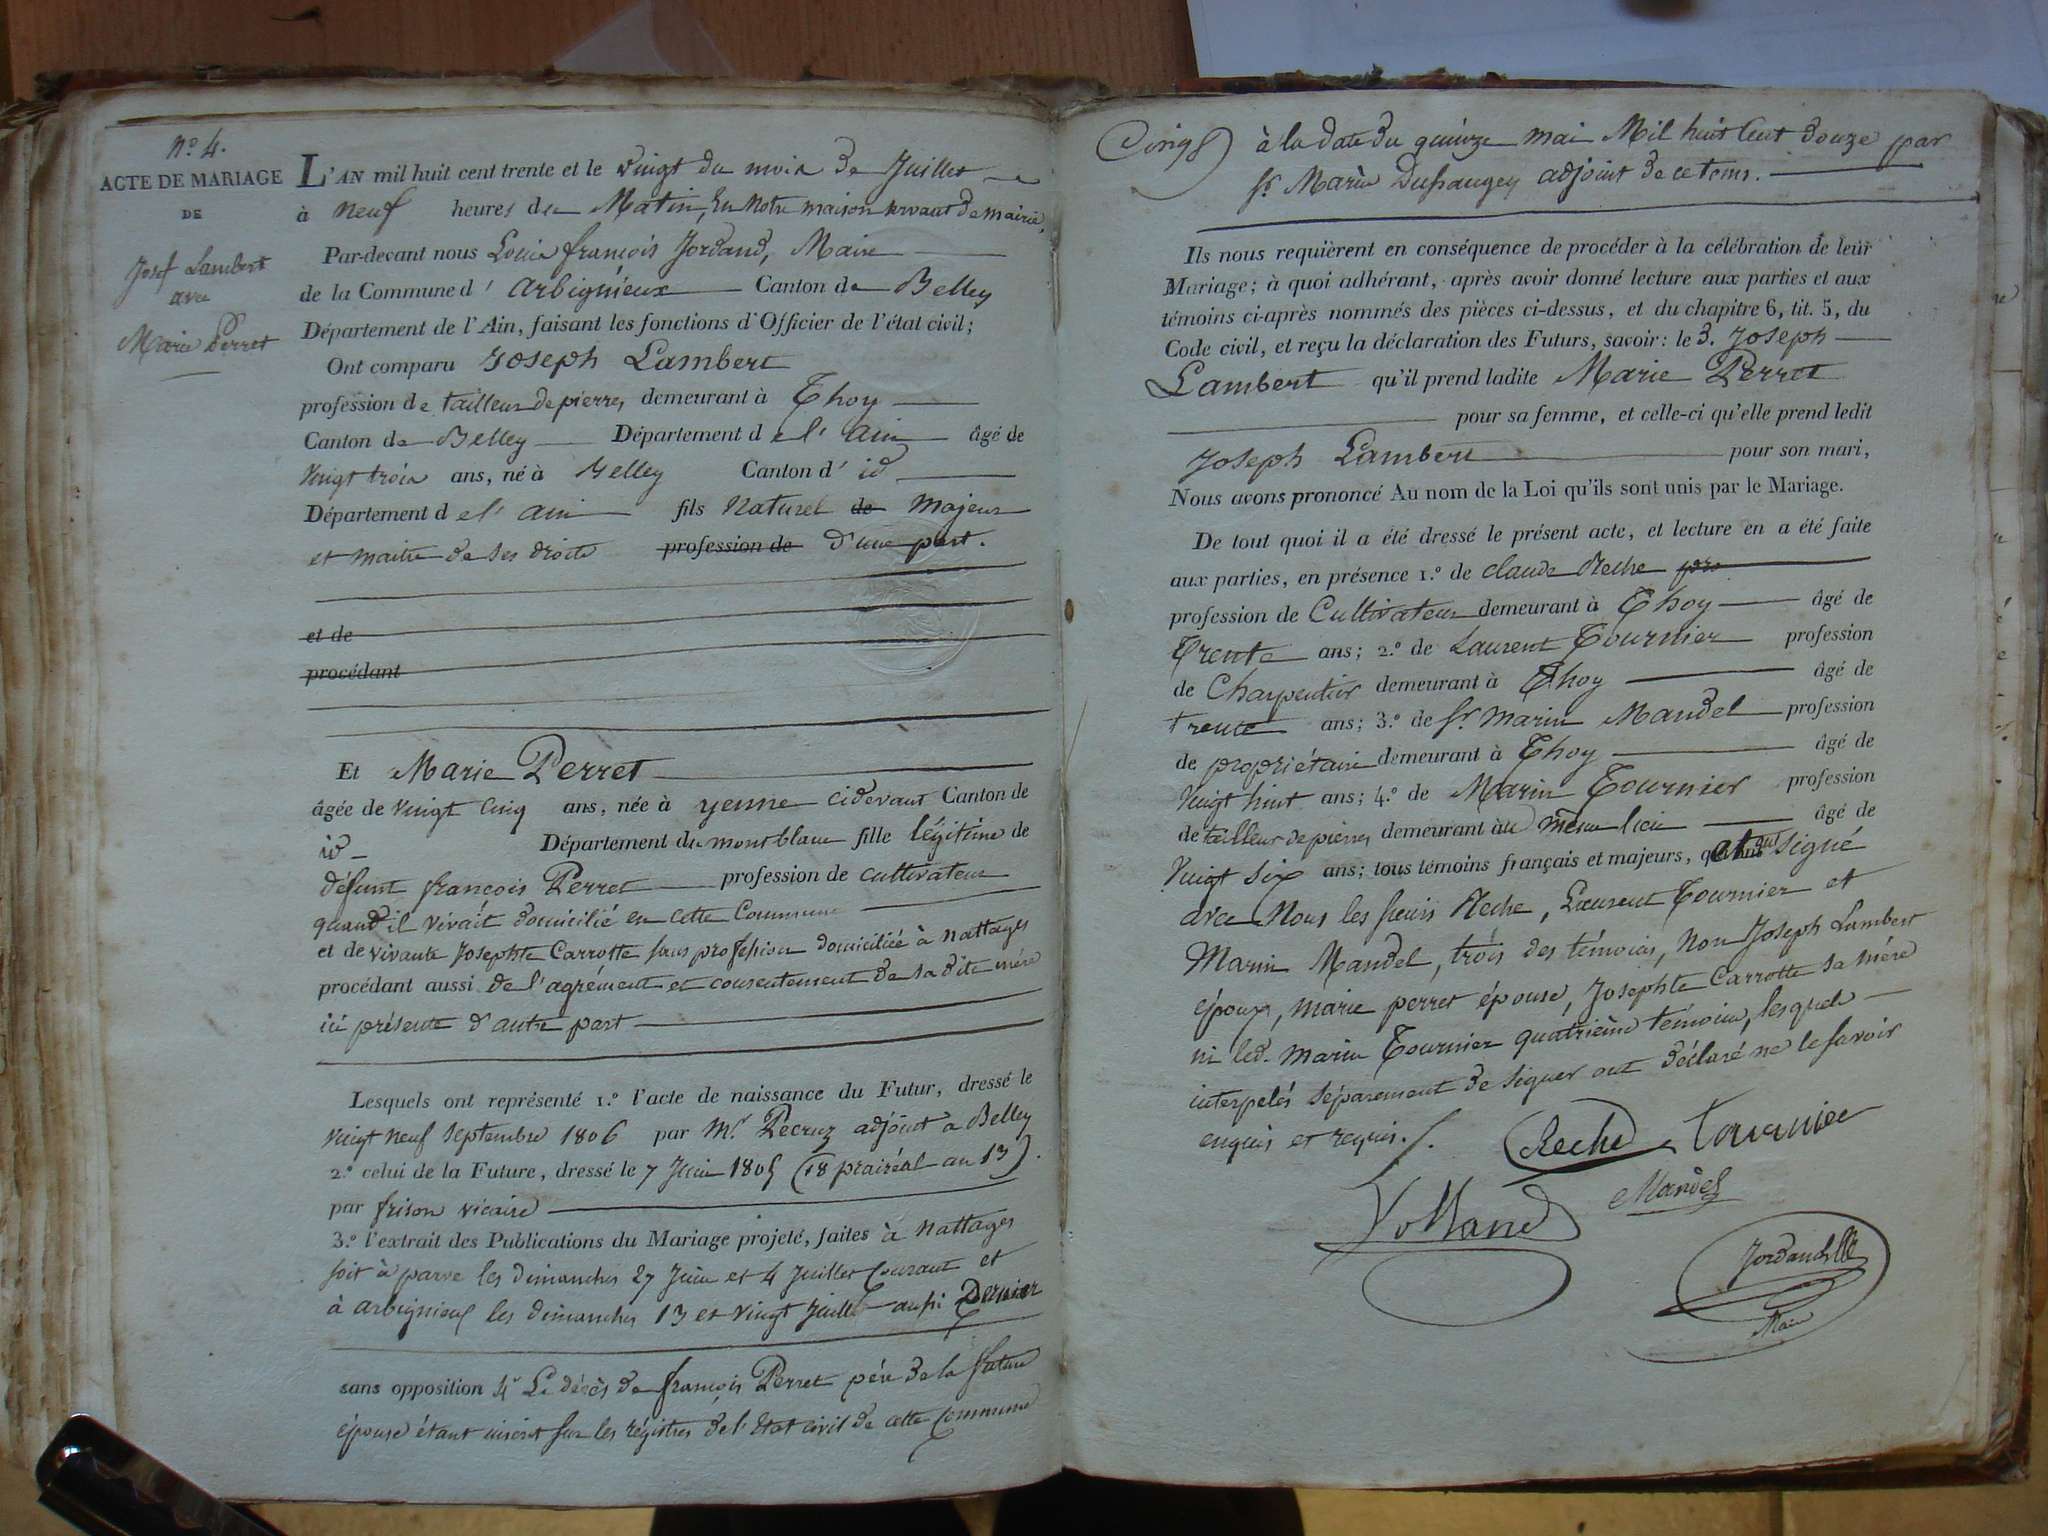 N.º 4.
ACTE DE MARIAGE
DE
Josef Lambert
avec
Marie Perret
L'AN mil huit cent trente et le vingt du mois de Juillet
à neuf heures du Matin, En Notre maison servant de mairie,
Par-devant nous Louis françois Jordand, Maire
de la Commune d' Arbignieux Canton de Belley
Département de l'Ain, faisant les fonctions d'Officier de l'état civil;
Ont comparu Joseph Lambert
profession de tailleur de pierres demeurant à Thoy
Canton de Belley Département de l' Ain âgé de
vingt trois ans, né à Belley Canton d' id
Département de l' ain fils Naturel de Majeur
et maitre de ses droits profession de d'une part.
et de
procédant
Et Marie Perret
âgée de vingt cinq ans, née à yenne cidevant Canton de
id Département du montblanc fille légitime de
défunt françois Perret profession de cultivateur
quand il vivait domicilié en cette Commune
et de vivante Josephte Carrotte sans profession domiciliée à Nattages
procédant aussi de l'agrément et consentement de sadite mère
ici présente d'autre part
Lesquels ont représenté 1.º l'acte de naissance du Futur, dressé le
vingt neuf septembre 1806 par Mr. Pecruz adjoint à Belley
2.º celui de la Future, dressé le 7 Juin 1805 (18 prairéal an 13).
par frison vicaire
3.º l'extrait des Publications du Mariage projeté, faites à Nattages
soit à parve les dimanches 27 Juin et 4 Juillet courant et
à arbignieux les dimanches 13 et vingt Juillet aussi Dernier
sans opposition 4º Le décès de françois Perret père de la future
épouse étant inscrit sur les régistres de l'état civil de cette Commune
à la date du quinze mai Mil huit Cent douze par
Sr. Marin Dufraugey adjoint de ce tems.
Ils nous requièrent en conséquence de procéder à la célébration de leur
Mariage; à quoi adhérant, après avoir donné lecture aux parties et aux
témoins ci-après nommés des pièces ci-dessus, et du chapitre 6, tit. 5, du
Code civil, et reçu la déclaration des Futurs, savoir: le 3. Joseph
Lambert qu'il prend ladite Marie Perret
pour sa femme, et celle-ci qu'elle prend ledit
Joseph Lambert pour son mari,
Nous avons prononcé Au nom de la Loi qu'ils sont unis par le Mariage.
De tout quoi il a été dressé le présent acte, et lecture en a été faite
aux parties, en présence 1.º de claude Reche
profession de Cultivateur demeurant à Thoy âgé de
Trente ans; 2.º de Laurent Tournier profession
de Charpentier demeurant à Thoy âgé de
trente ans; 3.º de Sr. Marin Mandel profession
de propriétaire demeurant à Thoy âgé de
Vingt huit ans; 4.º de Marin Tournier profession
de tailleur de pierres demeurant au même lieu âgé de
Vingt six ans; tous témoins français et majeurs, et ont signé
avec Nous les sieurs Reche, Laurent Tournier et
Marin Mandel, trois des témoins, Non Joseph Lambert
époux, marie perret épouse, Josephte Carrotte sa mère
ni led. marin Tournier quatrième témoin, lesquels
interpelés séparement de signer ont déclaré ne le savoir
enquis et requis.
Reche Tournier
Mandel
Volland
Jordand
Maire